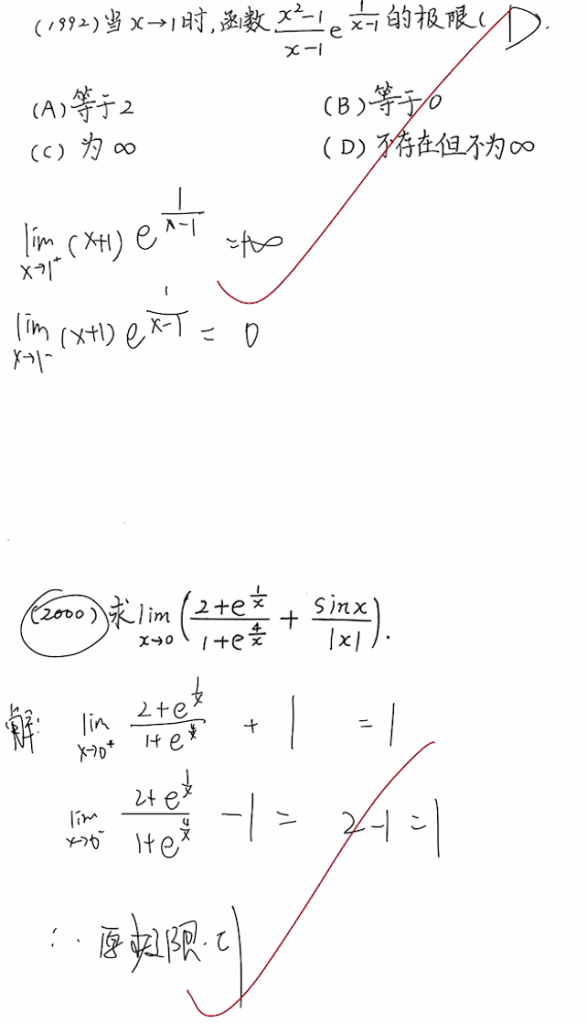 (1992)当x→1时,函数 \frac{x^2-1}{x-1} e^{\frac{1}{x-1}} 的极限( D ).
(A)等于2 (B)等于0
(C)为∞ (D)不存在但不为∞
\lim_{x→1^+} (x+1) e^{\frac{1}{x-1}} = +∞
\lim_{x→1^-} (x+1) e^{\frac{1}{x-1}} = 0
(2000)求 \lim_{x→0} \left( \frac{2+e^{\frac{1}{x}}}{1+e^{\frac{4}{x}}} + \frac{\sin x}{|x|} \right).
解: \lim_{x→0^+} \frac{2+e^{\frac{1}{x}}}{1+e^{\frac{4}{x}}} + 1 = 1
\lim_{x→0^-} \frac{2+e^{\frac{1}{x}}}{1+e^{\frac{4}{x}}} - 1 = 2-1=1
∴ 原极限